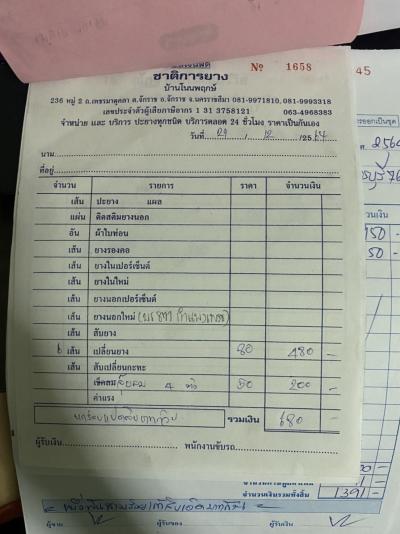 ชาติการยาง
№ 1658
บ้านโนนพฤกษ์
236 หมู่ 2 ถ.เพชรมาตุคลา ต.จักราช อ.จักราช จ.นครราชสีมา 081-9971810, 081-9993318
เลขประจำตัวผู้เสียภาษีอากร 1 31 3758121 063-4968383
จำหน่าย และ บริการ ปะยางทุกชนิด บริการตลอด 24 ชั่วโมง ราคาเป็นกันเอง
วันที่ 29 / 12 / 2564
นาม
ที่อยู่
จำนวน รายการ ราคา จำนวนเงิน
เส้น ปะยาง แผล
แผ่น ติดสติมยางนอก
อัน ผ้าใบท่อน
เส้น ยางรองคอ
เส้น ยางในเปอร์เซ็นต์
เส้น ยางในใหม่
เส้น ยางนอกเปอร์เซ็นต์
เส้น ยางนอกใหม่
เส้น สับยาง
6 เส้น เปลี่ยนยาง 80 480 -
เส้น สับเปลี่ยนกะทะ
เช็คลม 4 50 200 -
ค่าแรง
รวมเงิน 680 -
ผู้รับเงิน พนักงานขับรถ
45
2564
150 -
50 -
จำนวนเงินรวมทั้งสิ้น 1391 -
ผู้รับเงิน